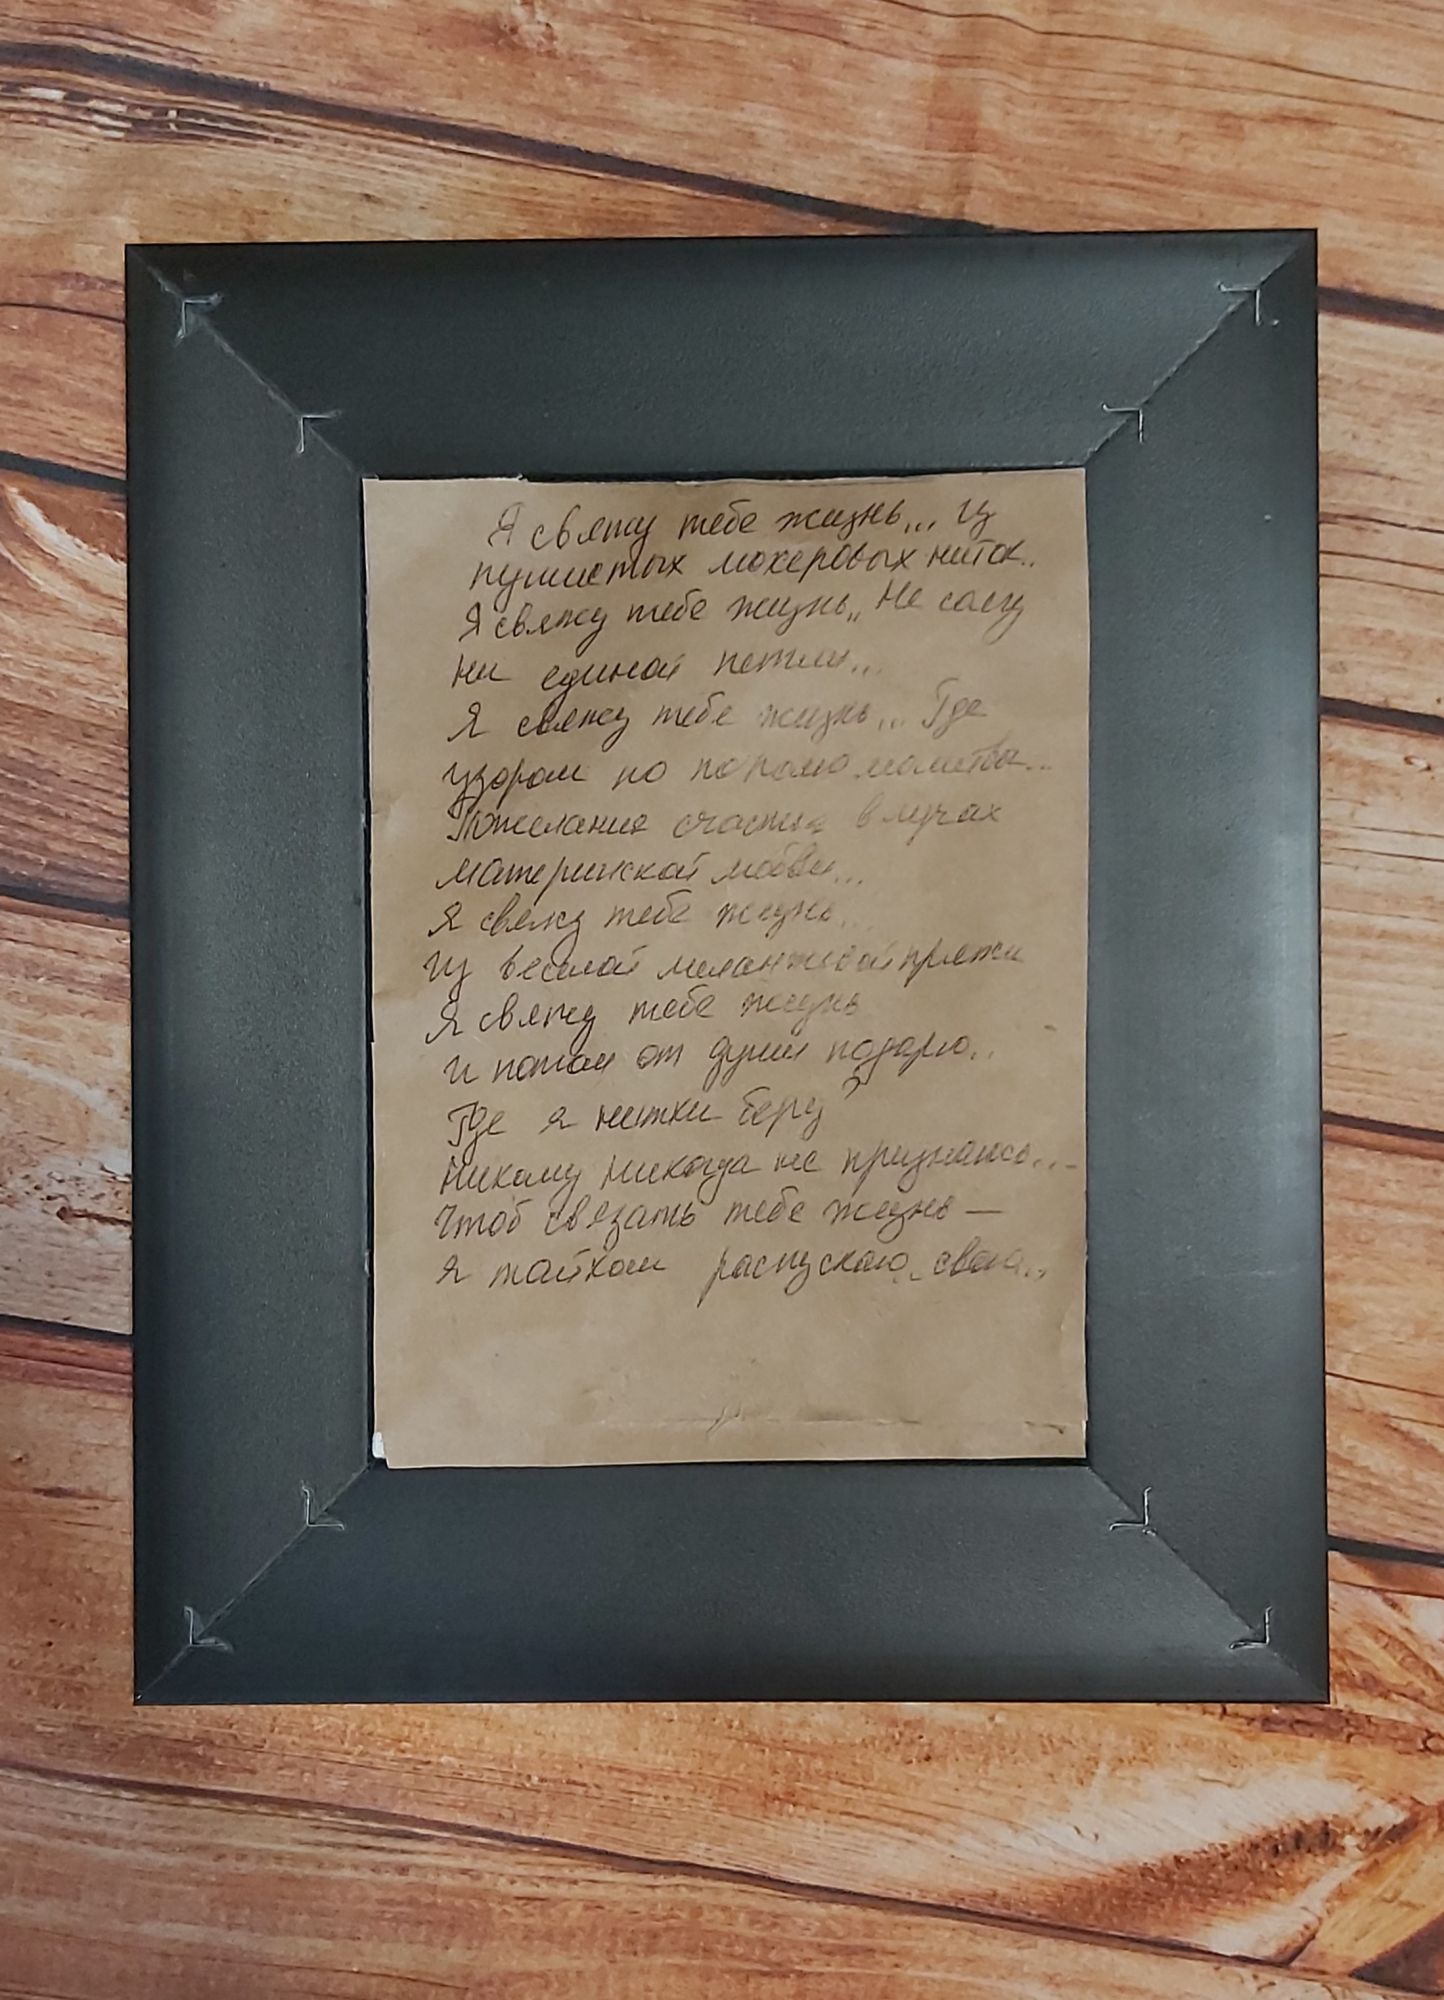 Я свяжу тебе жизнь... Из
пушистых мохеровых ниток..
Я свяжу тебе жизнь.. Не солгу
ни единой петли...
Я свяжу тебе жизнь... Где
узором по полю молитвы...
Пожелания счастья в лучах
материнской любви...
Я свяжу тебе жизнь...
Из веселой меланжевой пряжи
Я свяжу тебе жизнь
И потом от души подарю..
Где я нитки беру?
Никому никогда не признаюсь...
Чтоб связать тебе жизнь —
Я тайком распускаю.. свою..